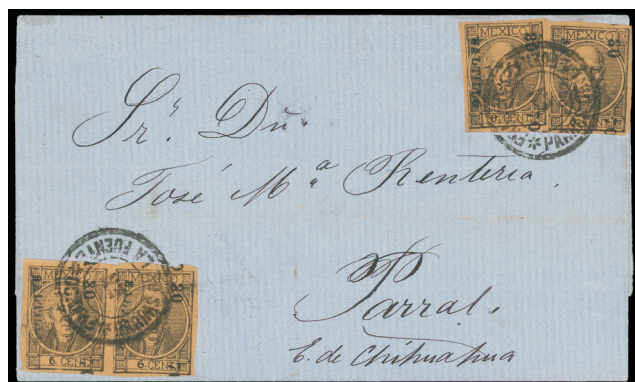 MEXICO MEXICO
6 CENT 6 CENT
Sr. Dn.
José Ma Renteria.
Parral.
E. de Chihuahua
MEXICO MEXICO
6 CENT 6 CENT
LA FUENTE
80 80